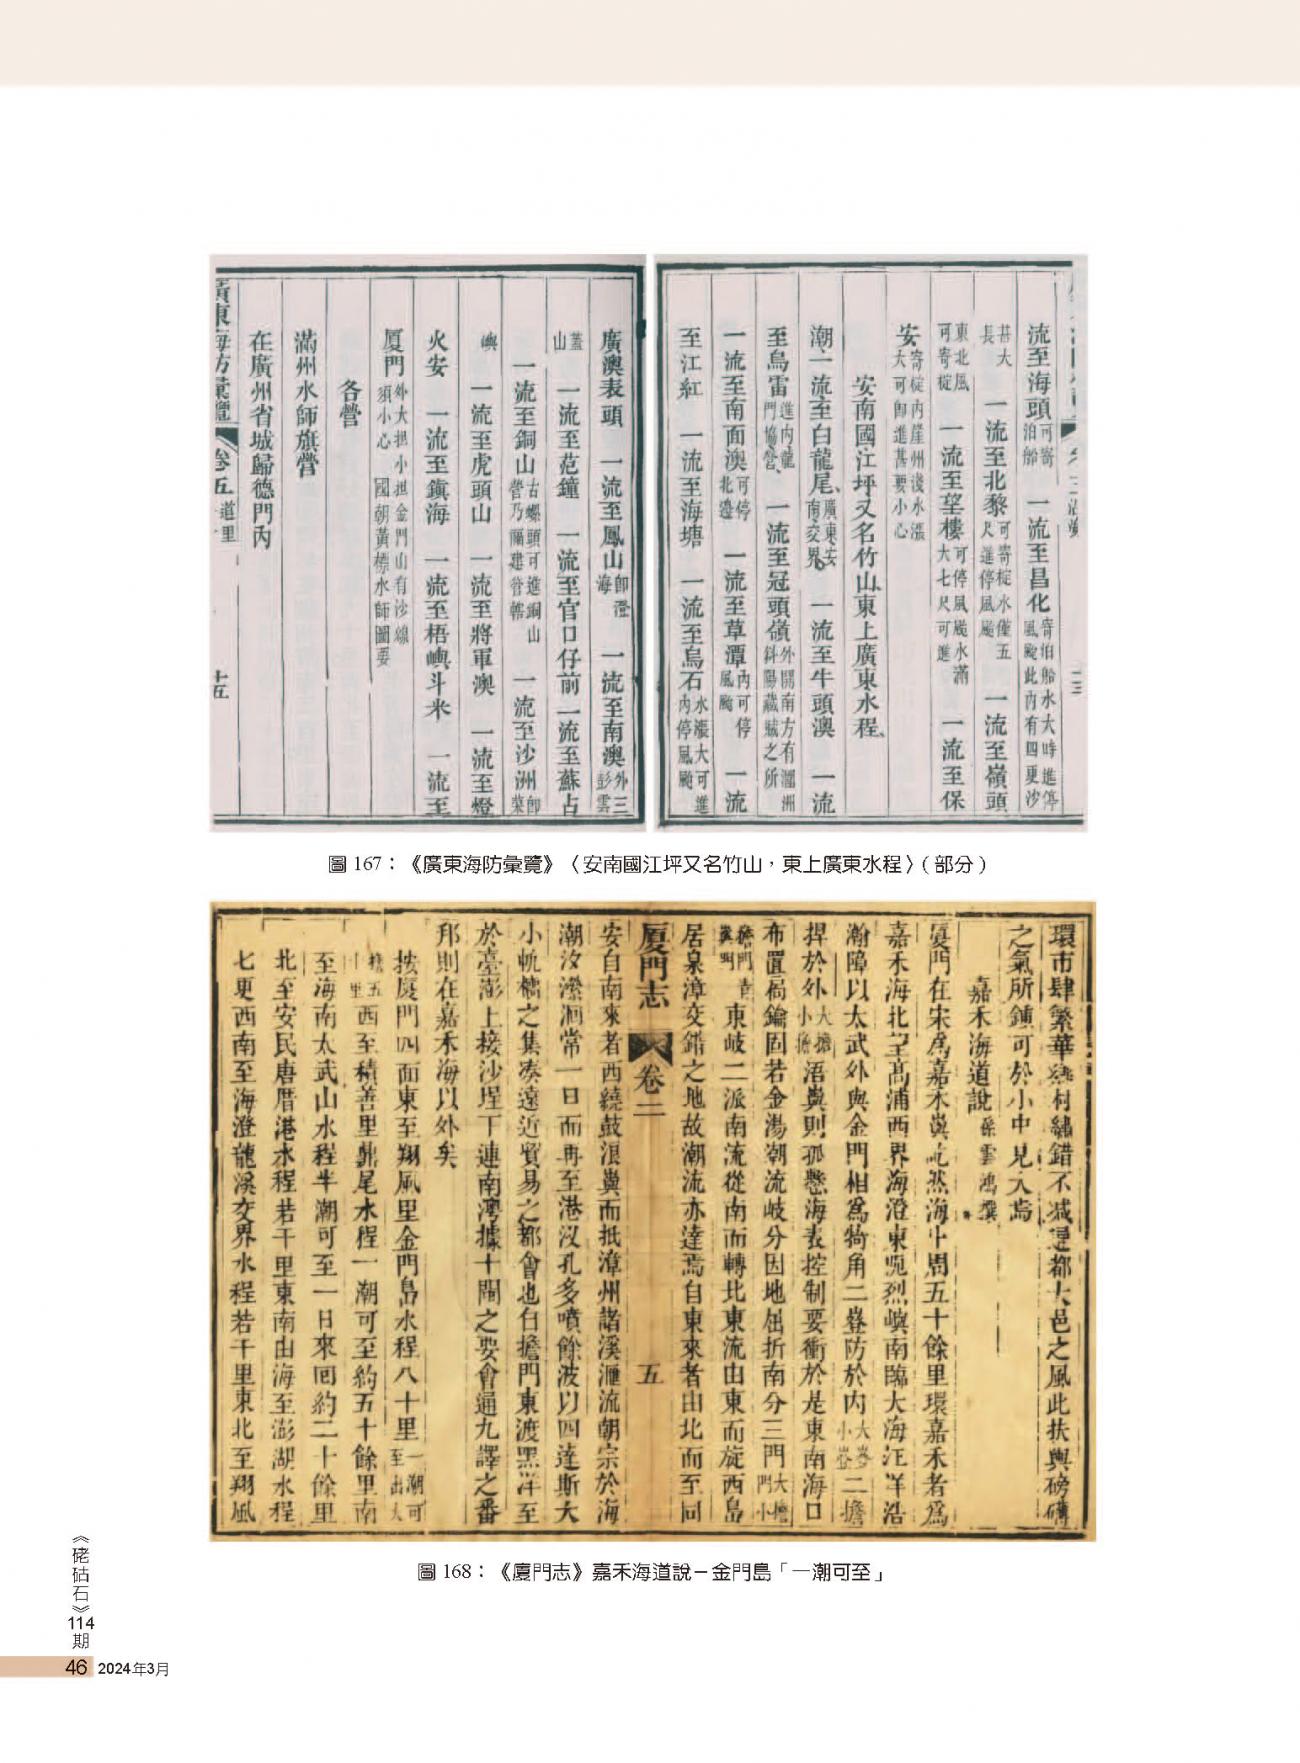 流至海頭可寄泊船 一流至昌化寄泊船水大時進停風颱此內有四更沙
甚大長 一流至北黎可寄椗水僅五尺進停風颱 一流至嶺頭
東北風可寄椗 一流至望樓可停風颱水滿大七尺可進 一流至保
安寄椗內崖州淺水漲大可卸進甚要小心
安南國江坪又名竹山東上廣東水程
潮一流至白龍尾廣東安南交界 一流至牛頭澳 一流
至烏雷進內龍門協營 一流至冠頭嶺外開南方有潿洲斜陽藏賊之所
一流至南面澳可停北邊 一流至草潭內可停風颱 一流
至江紅 一流至海塘 一流至烏石水漲大可進內停風颱
廣澳表頭 一流至鳳山即澄海 一流至南澳外三彭雲
蓋山 一流至范鐘 一流至官口仔前 一流至蘇占
一流至銅山古螺頭可進銅山營乃隔建營轄 一流至沙洲卸菜
嶼 一流至虎頭山 一流至將軍澳 一流至燈
火安 一流至鎮海 一流至梧嶼斗米 一流至
厦門外大担小担金門山有沙線須小心國朝黃標水師圖要
各營
滿州水師旗營
在廣州省城歸德門內
廣東海防彙覽 卷五 道里 十五
圖 167：《廣東海防彙覽》〈安南國江坪又名竹山，東上廣東水程〉（部分）
環市肆繁華鄉村繡錯不減通都大邑之風此扶輿磅礡
之氣所鍾可於小中見大焉
嘉禾海道說 孫雲鴻撰
廈門在宋爲嘉禾嶼屹然海中周五十餘里環嘉禾者爲
嘉禾海北至高浦西界海澄東咫烈嶼南臨大海汪洋浩
瀚障以太武外與金門相爲犄角二登防於內大登小登二擔
捍於外大擔小擔浯嶼則孤懸海表控制要衝於是東南海口
布置扃鑰固若金湯潮流岐分因地屈折南分三門大擔門小
擔門 東岐二派南流從南而轉北東流由東而旋西島
居泉漳交錯之地故潮流亦達焉自東來者由北而至同
廈門志 卷二 五
安自南來者西繞鼓浪嶼而抵漳州諸溪滙流朝宗於海
潮汐瀠洄常一日而再至港汊孔多噴餘波以四達斯大
小帆檣之集凑遠近貿易之都會也自擔門東渡黑洋至
於臺澎上接沙埕下連南灣據十閩之要會通九譯之番
邦則在嘉禾海以外矣
按廈門四面東至翔風里金門島水程八十里一潮可至出大
擔五十里西至積善里鼎尾水程一潮可至約五十餘里南
至海南太武山水程半潮可至一日來回約二十餘里
北至安民唐厝港水程若干里東南由海至澎湖水程
七更西南至海澄龍溪交界水程若干里東北至翔風
圖 168：《廈門志》嘉禾海道說－金門島「一潮可至」
《硓𥑮石》114期
46 2024年3月